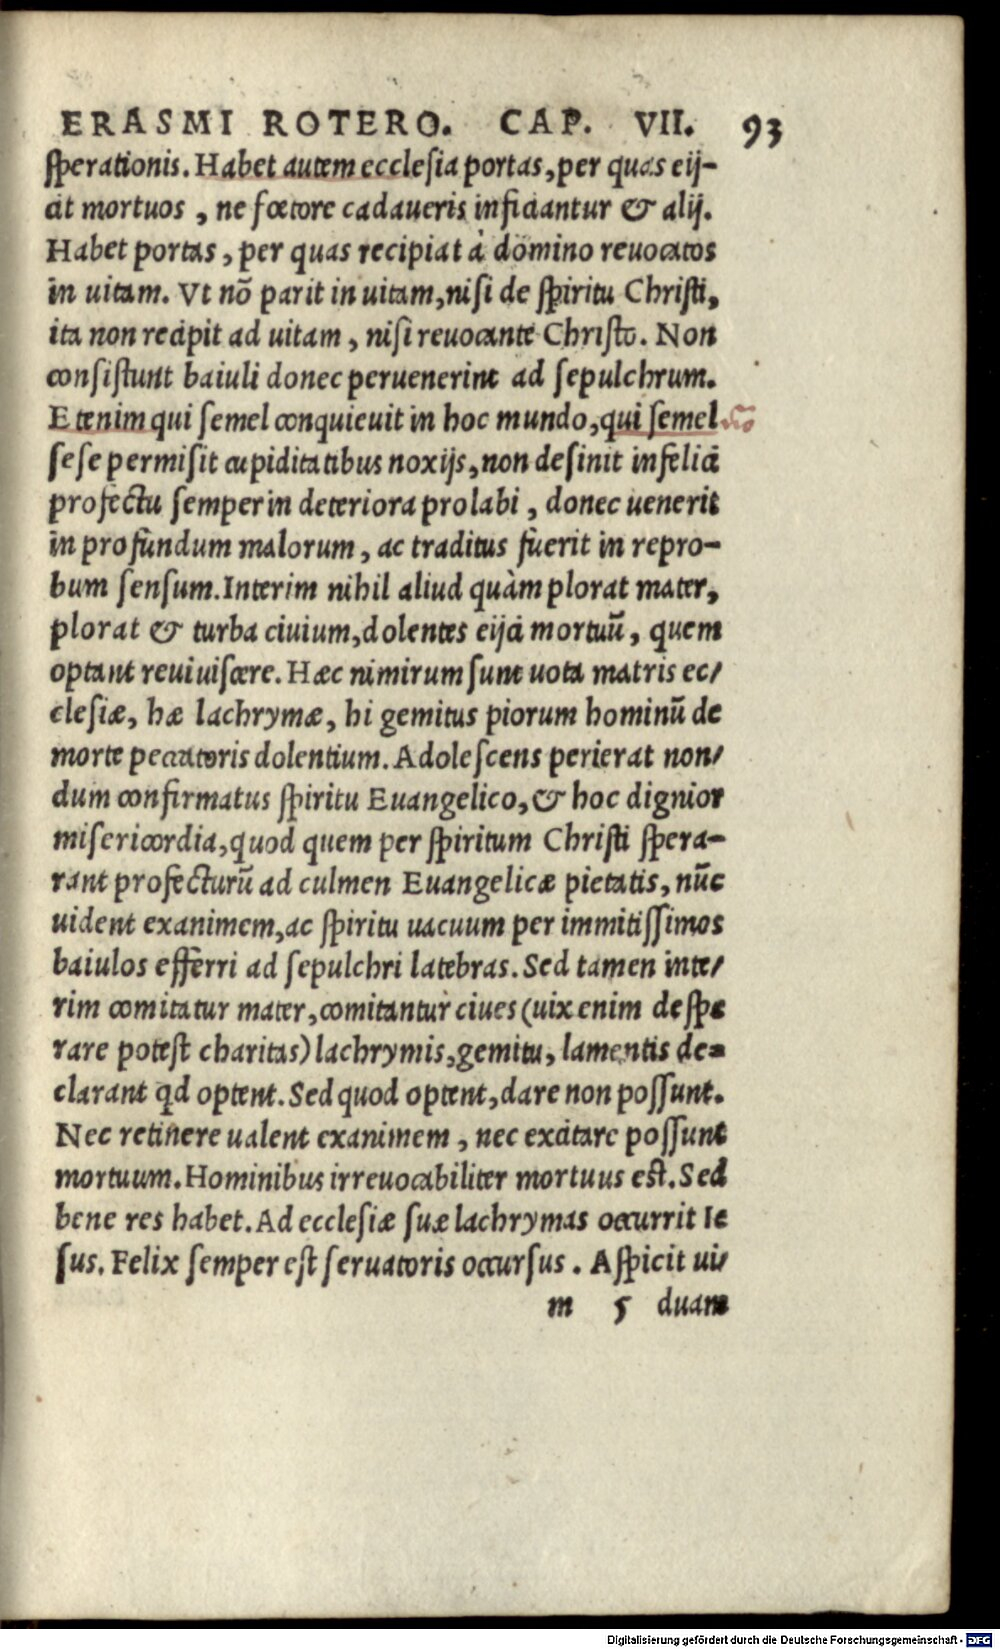 ERASMI ROTERO. CAP. VII. 93
ſperationis. Habet autem eccleſia portas, per quas eij-
cit mortuos, ne fœtore cadaueris inficiantur & alij.
Habet portas, per quas recipiat à domino reuocatos
in uitam. Vt nō parit in uitam, niſi de ſpiritu Chriſti,
ita non recipit ad uitam, niſi reuocante Chriſto. Non
conſiſtunt baiuli donec peruenerint ad ſepulchrum.
Etenim qui ſemel conquieuit in hoc mundo, qui ſemel
ſeſe permiſit cupiditatibus noxijs, non deſinit infelici
profectu ſemper in deteriora prolabi, donec uenerit
in profundum malorum, ac traditus fuerit in repro-
bum ſenſum. Interim nihil aliud quàm plorat mater,
plorat & turba ciuium, dolentes eijci mortuū, quem
optant reuiuiſcere. Hæc nimirum ſunt uota matris ec/
cleſiæ, hæ lachrymæ, hi gemitus piorum hominū de
morte peccatoris dolentium. Adoleſcens perierat non/
dum confirmatus ſpiritu Euangelico, & hoc dignior
miſericordia, quod quem per ſpiritum Chriſti ſpera-
rant profecturū ad culmen Euangelicæ pietatis, nūc
uident exanimem, ac ſpiritu uacuum per immitiſſimos
baiulos efferri ad ſepulchri latebras. Sed tamen inte/
rim comitatur mater, comitantur ciues (uix enim deſpe
rare poteſt charitas) lachrymis, gemitu, lamentis de=
clarant qd optent. Sed quod optent, dare non poſſunt.
Nec retinere ualent exanimem, nec excitare poſſunt
mortuum. Hominibus irreuocabiliter mortuus eſt. Sed
bene res habet. Ad eccleſiæ ſuæ lachrymas occurrit Ie
ſus. Felix ſemper eſt ſeruatoris occurſus. Aſpicit ui/
m 5 duam
Digitalisierung gefördert durch die Deutsche Forschungsgemeinschaft - DFG